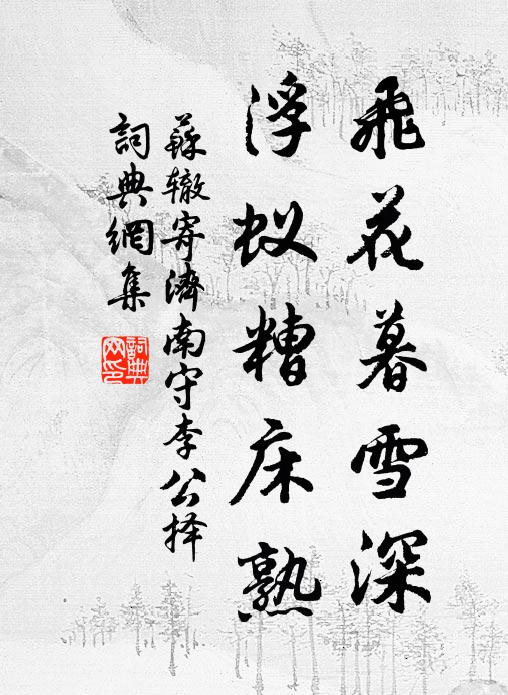 飛花暮雪深
浮蚁糟床熟
蘇辙寄濟南守李公择
詞典網集
詞典網印